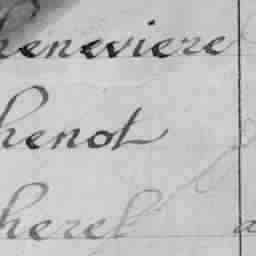 heneviere
henot
herel a